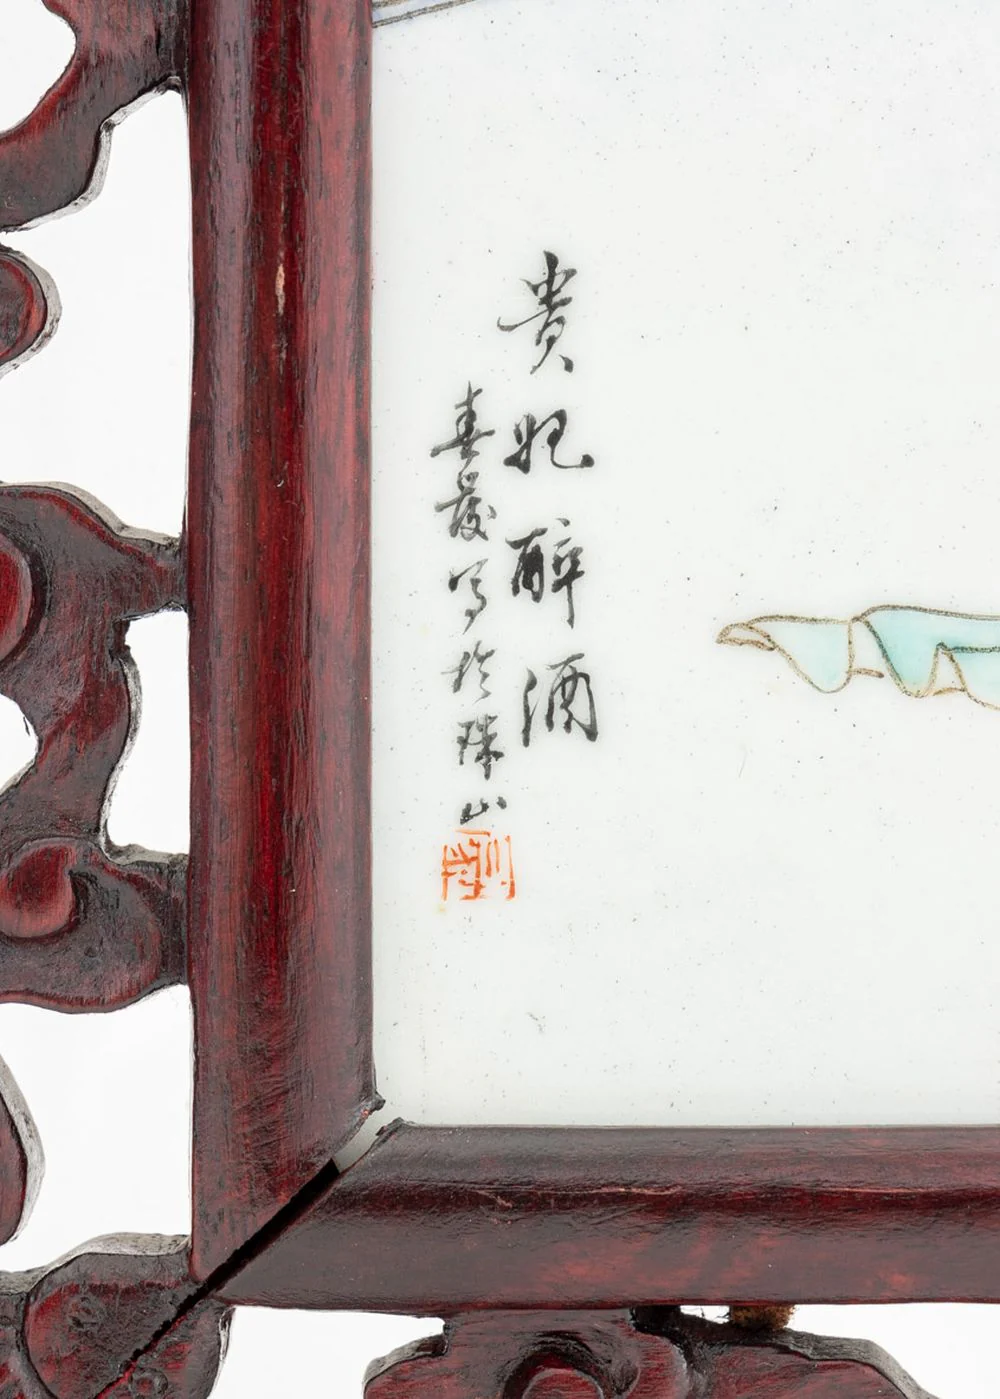 貴妃醉酒
春發写於珠山